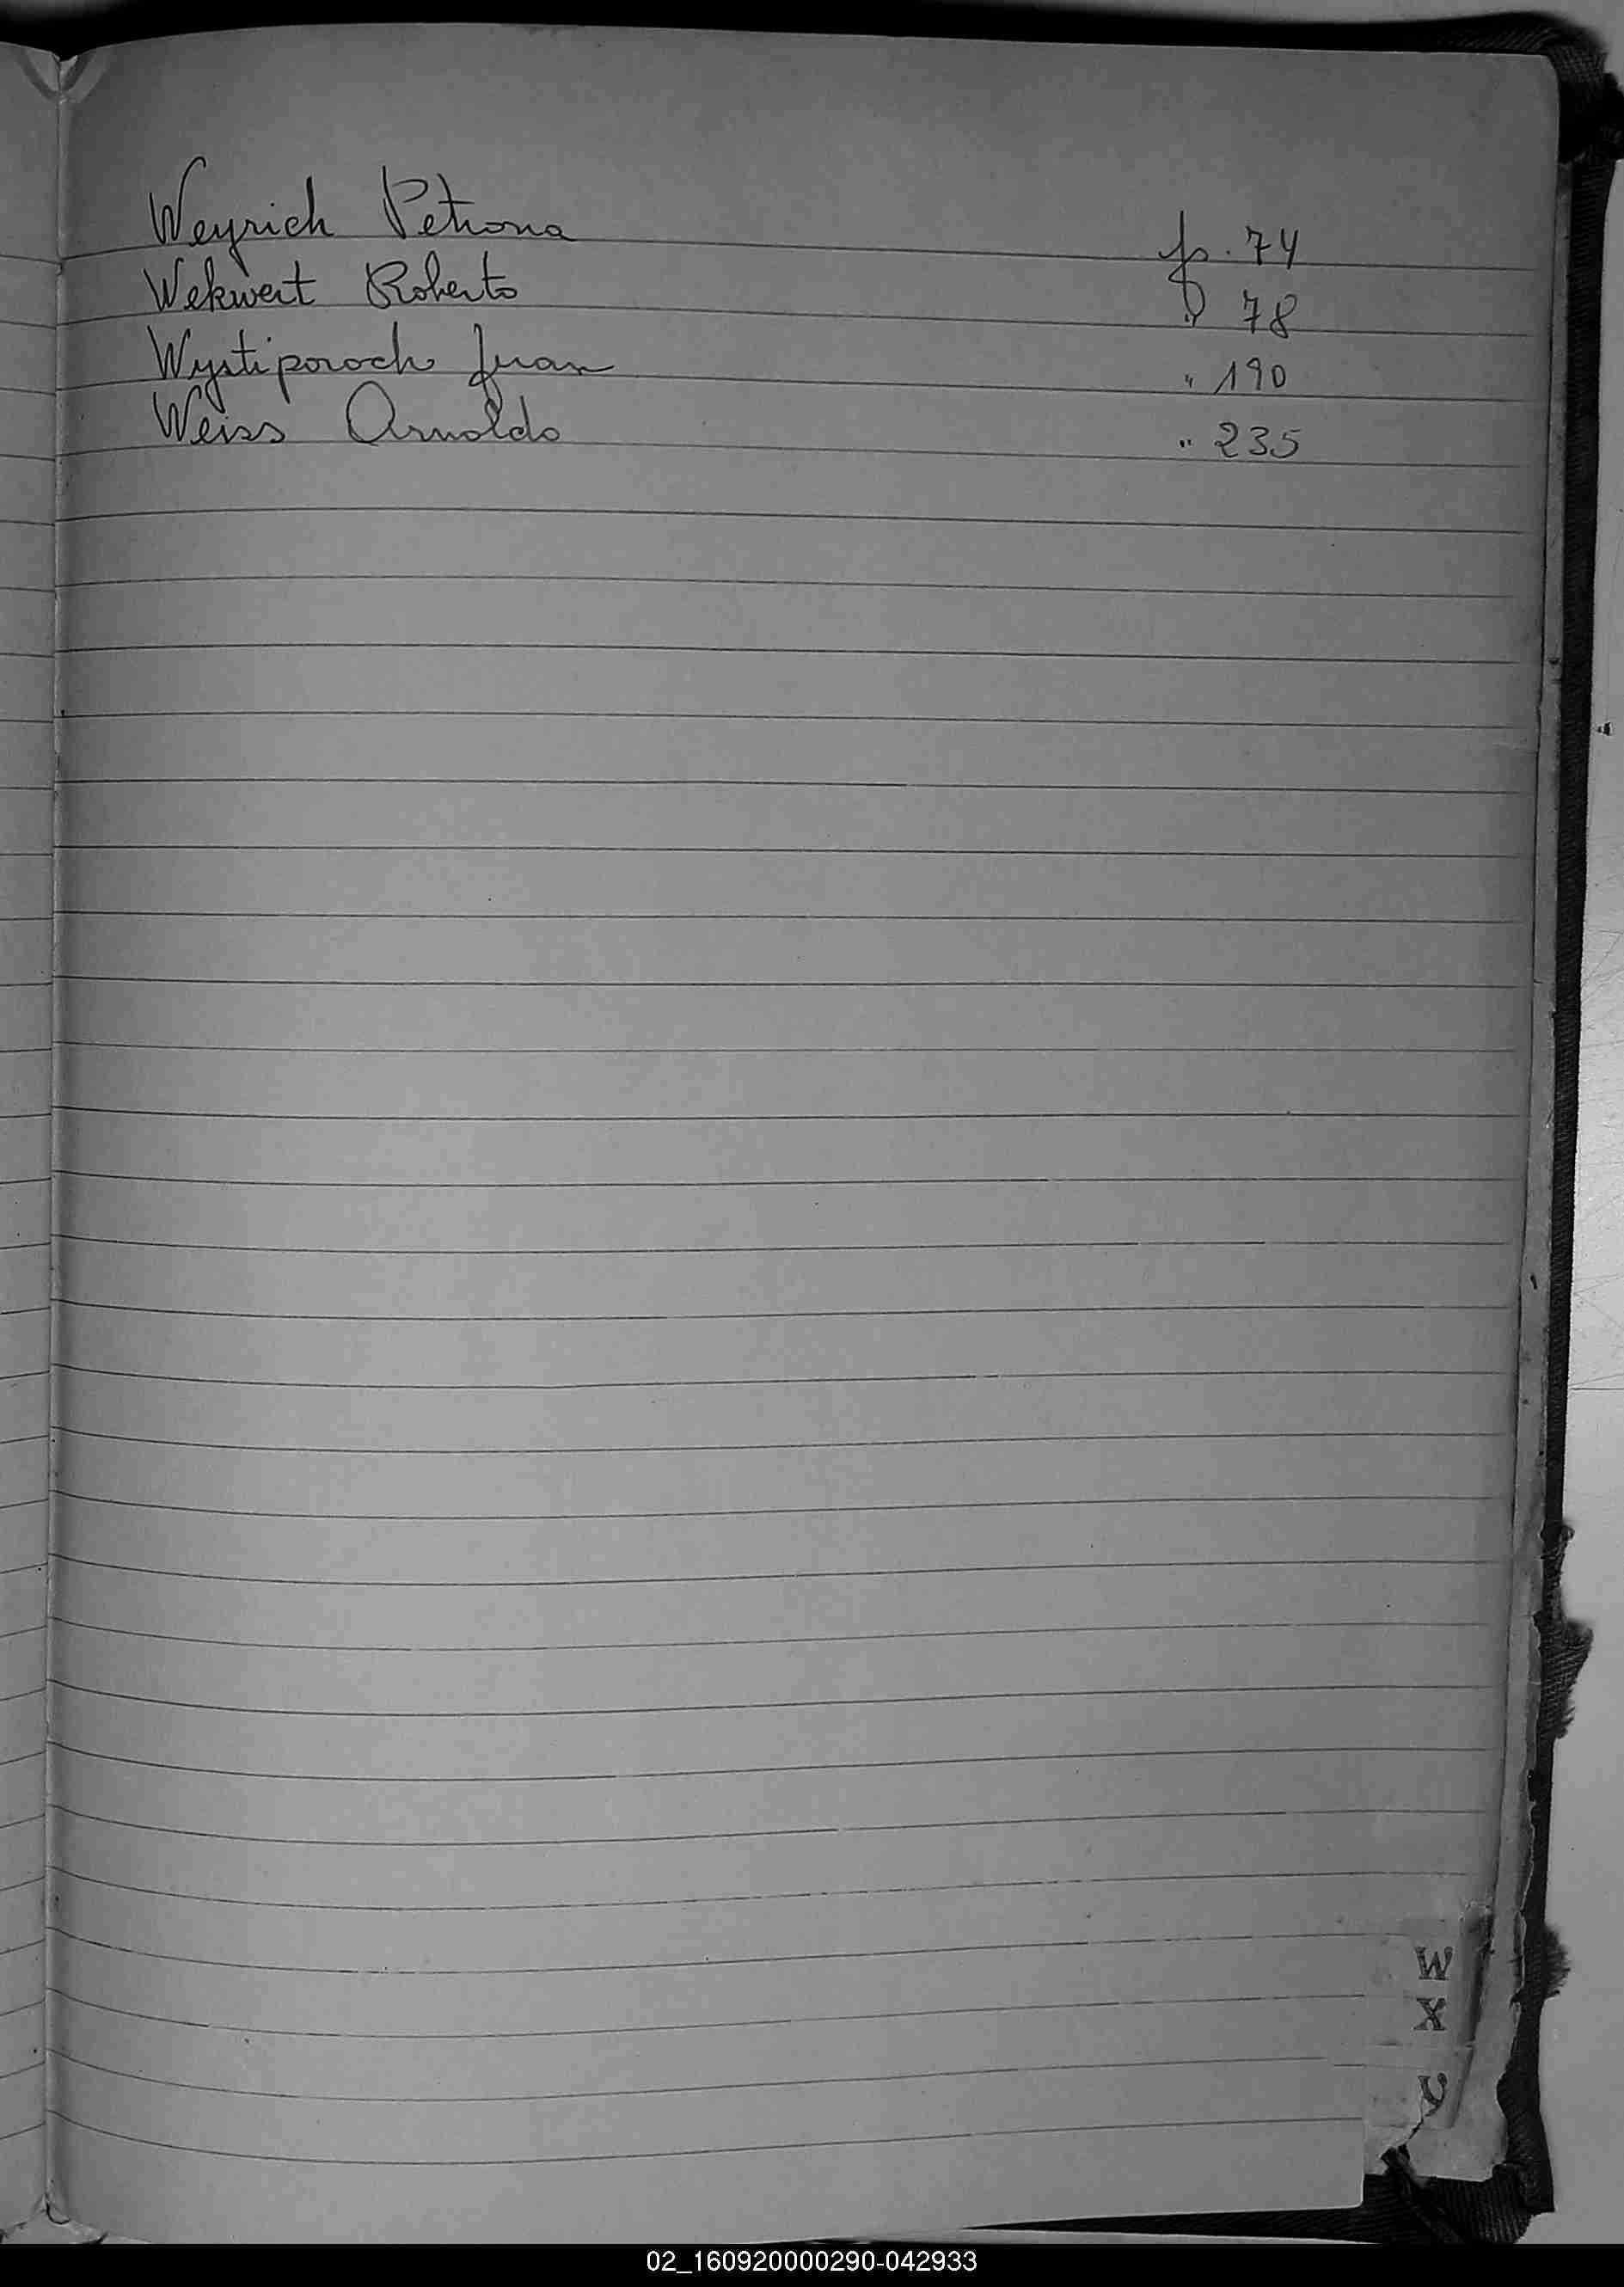 Weyrich Petrona p. 74
Wekwert Roberto " 78
Wystiporoch Juan " 190
Weiss Arnoldo " 235
W
X
Y
02_160920000290-042933